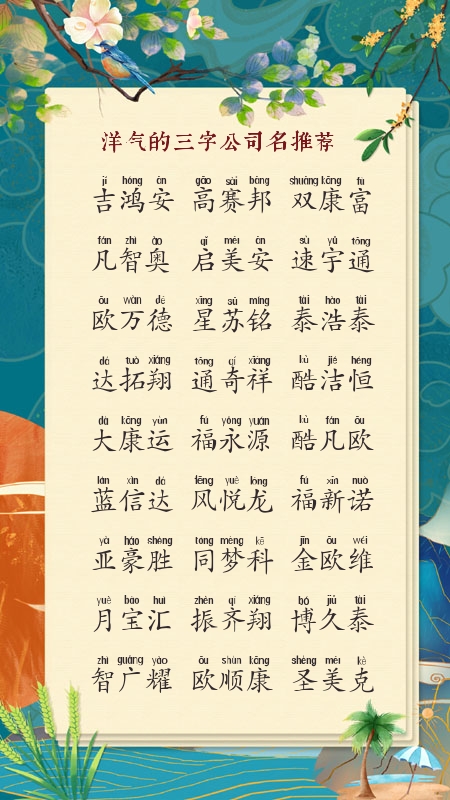 洋气的三字公司名推荐
jí hóng ān gāo sài bāng shuāng kāng fù
吉鸿安 高赛邦 双康富
fán zhì ào qǐ měi ān sù yǔ tōng
凡智奥 启美安 速宇通
ōu wàn dé xīng sū míng tài hào tài
欧万德 星苏铭 泰浩泰
dá tuò xiáng tōng qí xiáng kù jié héng
达拓翔 通奇祥 酷洁恒
dà kāng yùn fú yǒng yuán kù fán ōu
大康运 福永源 酷凡欧
lán xìn dá fēng yuè lóng fú xīn nuò
蓝信达 风悦龙 福新诺
yà háo shèng tóng mèng kē jīn ōu wéi
亚豪胜 同梦科 金欧维
yuè bǎo huì zhèn qí xiáng bó jiǔ tài
月宝汇 振齐翔 博久泰
zhì guǎng yào ōu shùn kāng shèng měi kè
智广耀 欧顺康 圣美克